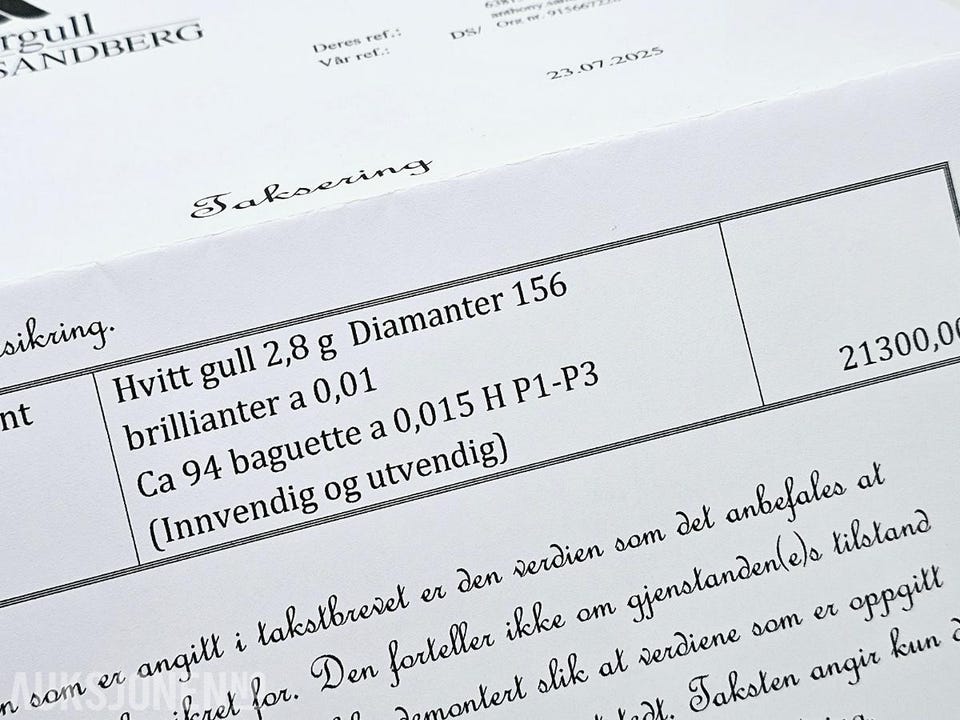 rgull
SANDBERG
Deres ref.:
Vår ref.:
DS/
23.07.2025
Taksering
sikring.
nt
Hvitt gull 2,8 g Diamanter 156
brillianter a 0,01
Ca 94 baguette a 0,015 H P1-P3
(Innvendig og utvendig)
21300,00
n som er angitt i takstbrevet er den verdien som det anbefales at
ikret for. Den forteller ikke om gjenstanden(e)s tilstand
demontert slik at verdiene som er oppgitt
Taksten angir kun d
AUKSJONEN